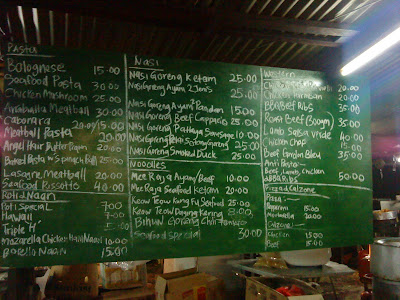 Pasta
Bolognese 15.00
Seafood Pasta 30.00
Chicken Mushroom 25.00
Arabiatta Meatball 30.00
Cabonara 20.00/15.00
Meatball Pasta 20.00
Angel Hair Butter Prawn 20.00
Baked Pasta w Spinach Ball 25.00
Lasagne Meatball 20.00
Seafood Rissotto 40.00
Roti & Naan
Roti Special 7.00
Hawaii 7.00
Triple 'H'
Mozarella Chicken Naan
Naan 15.00
Nasi
Nasi Goreng Ketam 25.00
Nasi Goreng Ayam 2 Jenis 25.00
Nasi Goreng Ayam Pandan 15.00
Nasi Goreng Beef Cappacio 25.00
Nasi Goreng Pattaya Sausage 10.00
Nasi Goreng
Nasi Goreng Smoked Duck 25.00
Noodles
Mee Raja Ayam/Beef 10.00
Mee Raja Seafood Ketam 20.00
Keow Teow Kung Fu Seafood 25.00
Keow Teow Daging Kering 8.00
Bihun Goreng Chili
Seafood Special 30.00
Western
35.00
20.00
BBQ Beef Ribs 35.00
Roast Beef 35.00
Lamb 40.00
Chicken Chop 15.00
Beef Gordon Bleu 35.00
Anti Pasto
Beef, Lamb, Chicken
BBQ Ribs 50.00
Pizza & Calzone
Pizza:
Peperoni 15.00
20.00
Calzone:
Chicken 15.00
Beef 15.00